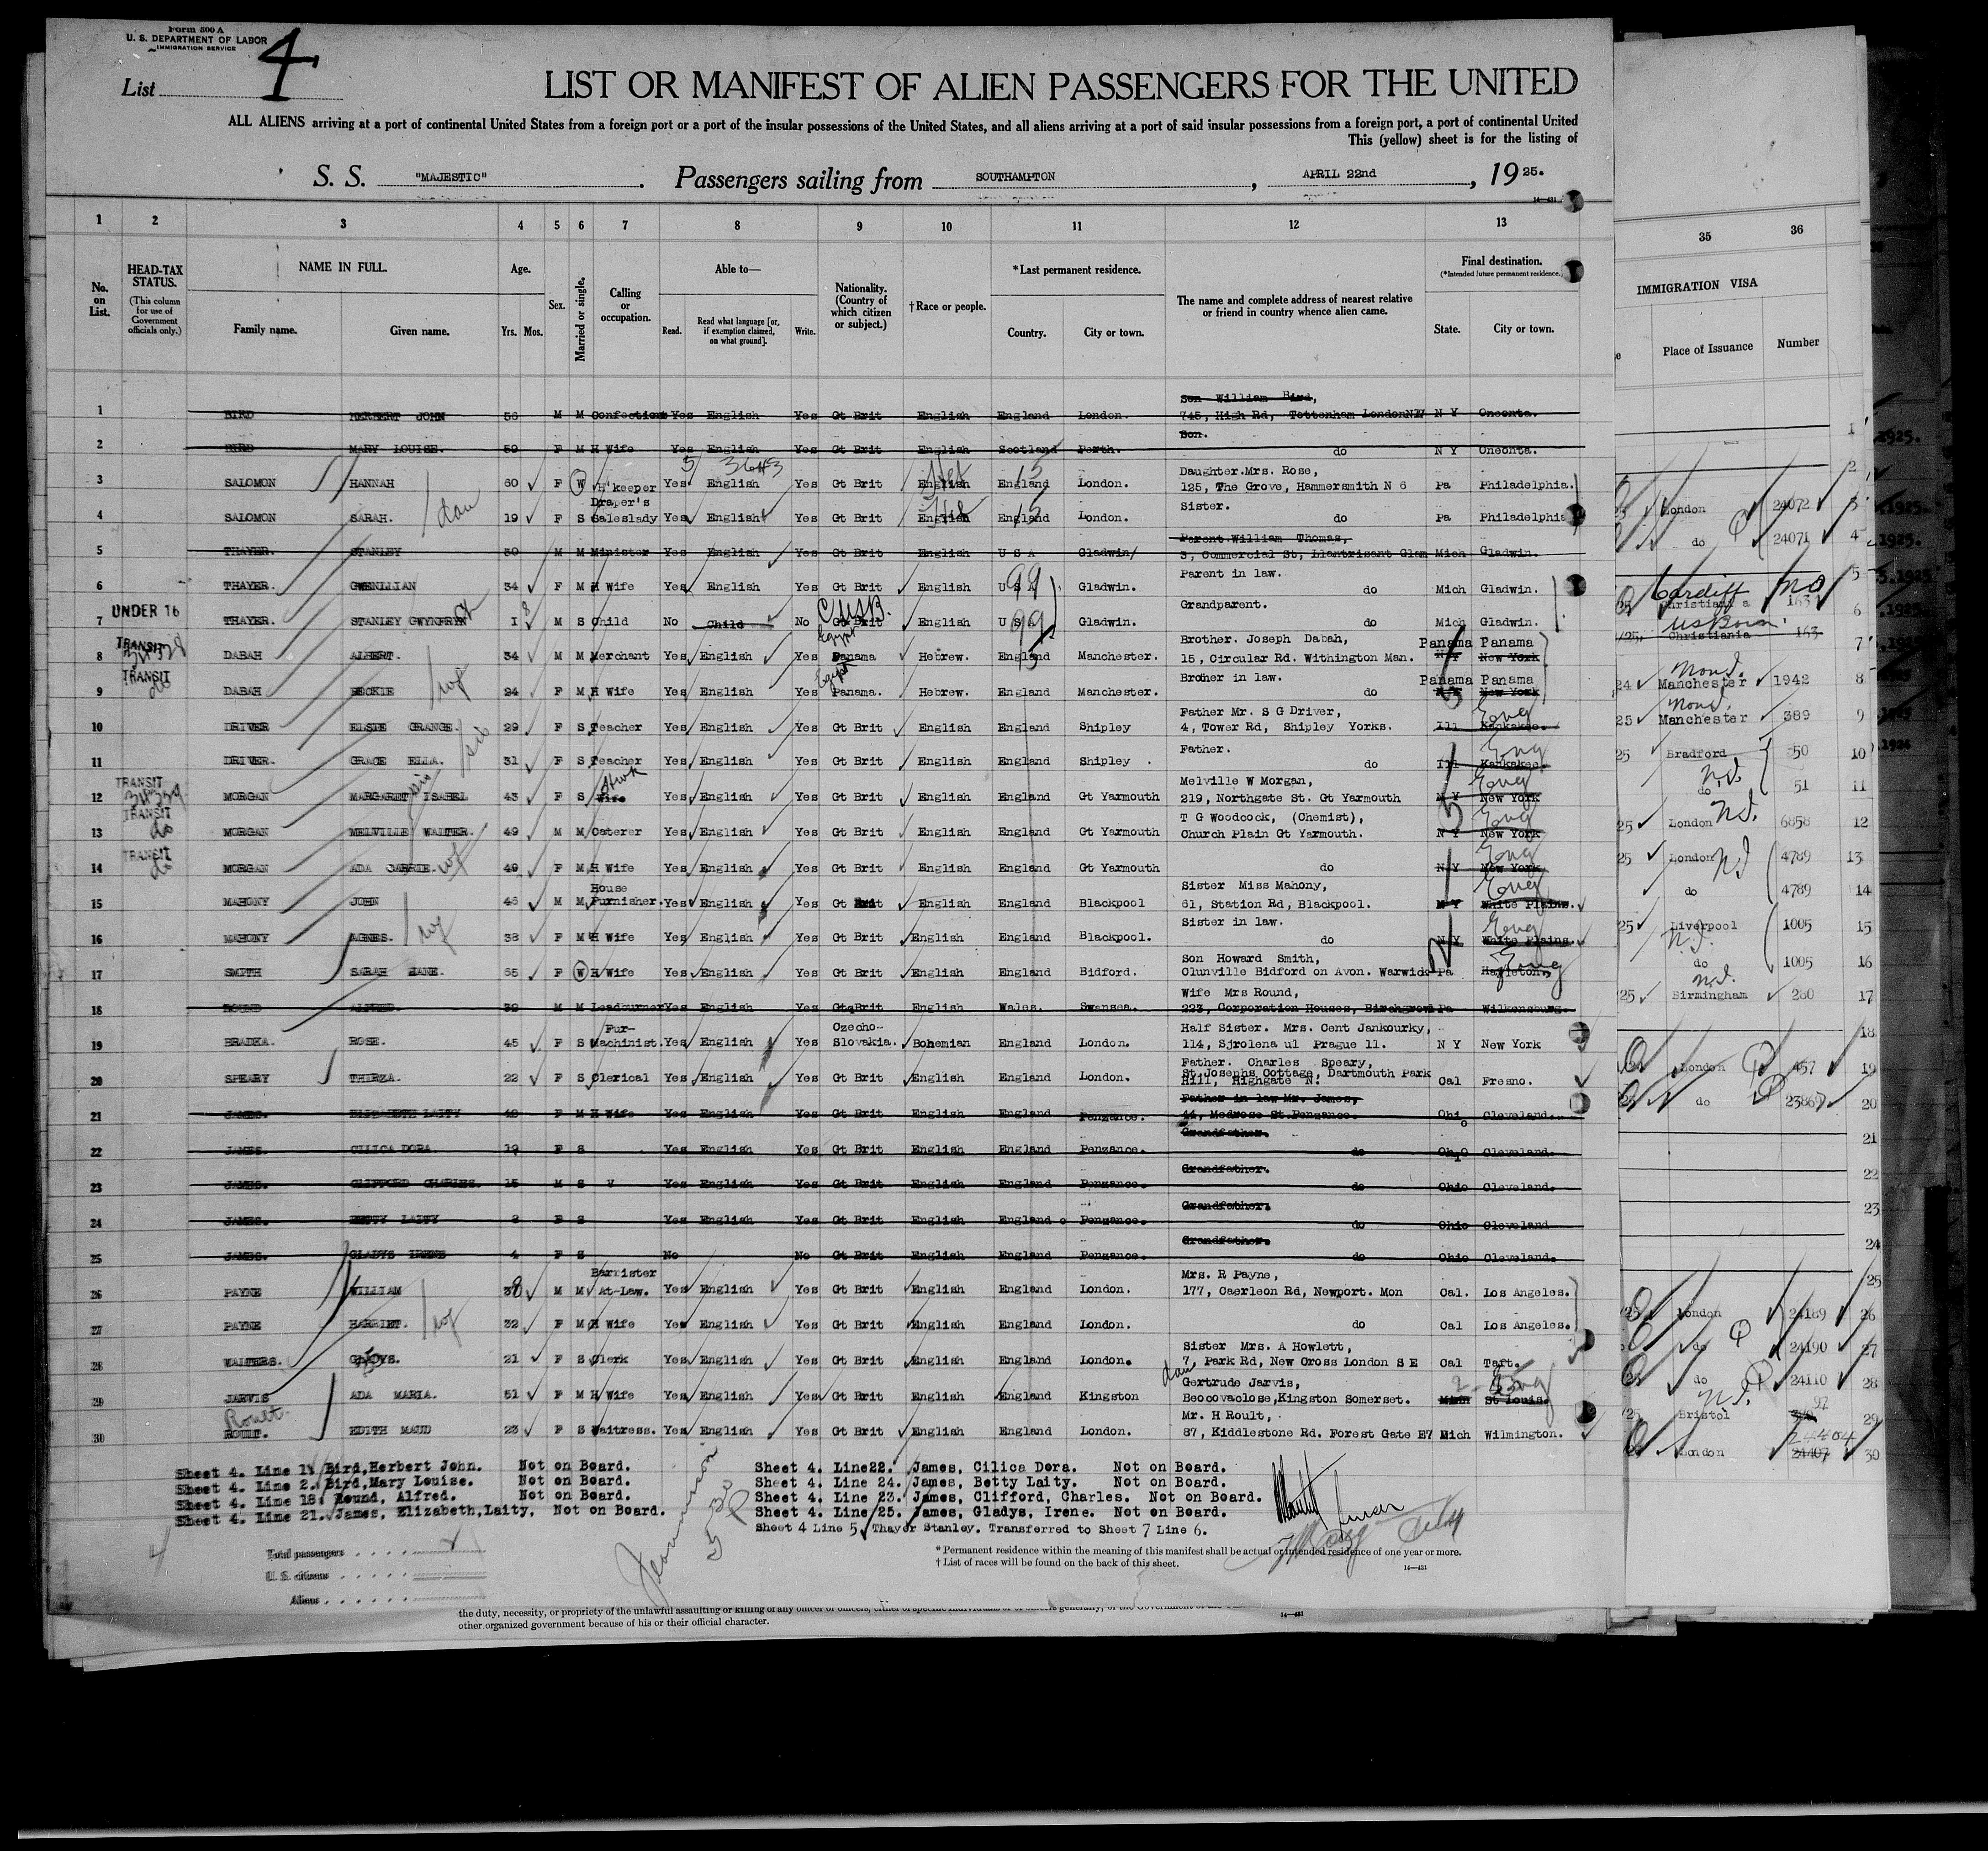 Form 500 A
U. S. DEPARTMENT OF LABOR
IMMIGRATION SERVICE
List 4
LIST OR MANIFEST OF ALIEN PASSENGERS FOR THE UNITED
ALL ALIENS arriving at a port of continental United States from a foreign port or a port of the insular possessions of the United States, and all aliens arriving at a port of said insular possessions from a foreign port, a port of continental United
This (yellow) sheet is for the listing of
S. S. "MAJESTIC" . Passengers sailing from SOUTHAMPTON , APRIL 22nd , 1925.
14—431
1 2 3 4 5 6 7 8 9 10 11 12 13 35 36
No. on List.
HEAD-TAX STATUS.
(This column for use of Government officials only.)
NAME IN FULL.
Family name. Given name.
Age.
Yrs. Mos.
Sex.
Married or single.
Calling or occupation.
Able to—
Read. Read what language [or, if exemption claimed, on what ground]. Write.
Nationality. (Country of which citizen or subject.)
†Race or people.
*Last permanent residence.
Country. City or town.
The name and complete address of nearest relative or friend in country whence alien came.
Final destination.
(*Intended future permanent residence.)
State. City or town.
IMMIGRATION VISA
Place of Issuance Number
Son William Bird,
1 BIRD HERBERT JOHN M M Yes English Yes Gt Brit English England London. 745, High Rd, Tottenham London N17 N Y Oneonta.
Son.
2 BIRD MARY LOUISE. 59 F M H Wife Yes English Yes Gt Brit English Scotland Perth. do N Y Oneonta.
Daughter.Mrs. Rose,
3 SALOMON HANNAH 60 F W H'keeper Yes English Yes Gt Brit English England London. 125, The Grove, Hammersmith N 6 Pa Philadelphia. London 24072 3
Draper's Sister.
4 SALOMON SARAH. dau 19 F S Saleslady Yes English Yes Gt Brit English England London. do Pa Philadelphia do 24071 4
Parent William Thomas,
5 THAYER. STANLEY 30 M M Minister Yes English Yes Gt Brit English U S A Gladwin/ 3, Commercial St, Llantrisant Glam Mich Gladwin. 5
Parent in law.
6 THAYER. GWENLLIAN 34 F M H Wife Yes English Yes Gt Brit English U S A 99 Gladwin. do Mich Gladwin. Cardiff Christiania 163 6
UNDER 16 Grandparent.
7 THAYER. STANLEY GWYNFRYN 1 8 M S Child No Child No Gt Brit English U S A 99 Gladwin. do Mich Gladwin. US Born Christiania 163 7
TRANSIT Egypt Brother. Joseph Dabah, Panama Panama
8 DABAH ALBERT. 34 M M Merchant Yes English Yes Panama Hebrew. England Manchester. 15, Circular Rd. Withington Man. N Y New York Manchester 1942 8
TRANSIT do Egypt Brother in law. Panama Panama
9 DABAH BECKIE wf 24 F M H Wife Yes English Yes Panama. Hebrew. England Manchester. do N Y New York Manchester 389 9
Father Mr. S G Driver, Eng
10 DRIVER ELSIE GRANGE. 29 F S Teacher Yes English Yes Gt Brit English England Shipley 4, Tower Rd, Shipley Yorks. Ill Kankakee. Bradford 50 10
Father. Eng
11 DRIVER. GRACE ELLA. sis 31 F S Teacher Yes English Yes Gt Brit English England Shipley . do Ill Kankakee. do 51 11
TRANSIT Melville W Morgan, Eng
12 MORGAN MARGARET ISABEL 43 F S Wife Yes English Yes Gt Brit English England Gt Yarmouth 219, Northgate St. Gt Yarmouth N Y New York London 6858 12
TRANSIT do T G Woodcock, (Chemist), Eng
13 MORGAN MELVILLE WALTER. 49 M M Caterer Yes English Yes Gt Brit English England Gt Yarmouth Church Plain Gt Yarmouth. N Y New York London 4789 13
TRANSIT do Eng
14 MORGAN ADA CARRIE. wf 49 F M H Wife Yes English Yes Gt Brit English England Gt Yarmouth do N Y New York do 4789 14
House Sister Miss Mahony, Eng
15 MAHONY JOHN 46 M M Furnisher. Yes English Yes Gt Brit English England Blackpool 61, Station Rd, Blackpool. N Y White Plains. Liverpool 1005 15
Sister in law. Eng
16 MAHONY AGNES. wf 38 F M H Wife Yes English Yes Gt Brit English England Blackpool. do N Y White Plains. do 1005 16
Son Howard Smith, Eng
17 SMITH SARAH JANE. 65 F W H Wife Yes English Yes Gt Brit English England Bidford. Clunville Bidford on Avon. Warwick Pa Hazleton. Birmingham 280 17
Wife Mrs Round,
18 ROUND ALFRED. 39 M M Leadburner Yes English Yes Gt Brit English Wales. Swansea. 223, Corporation Houses, Birchgrove Pa Wilkensburg. 18
Fur- Czecho- Half Sister. Mrs. Cent Jankourky,
19 BRADKA. ROSE. 45 F S Machinist. Yes English Yes Slovakia. Bohemian England London. 114, Sjrolena ul Prague 11. N Y New York London 457 19
Father. Charles Speary,
St.Josephs Cottage, Dartmouth Park
20 SPEARY THIRZA. 22 F S Clerical Yes English Yes Gt Brit English England London. Hill, Highgate N. Cal Fresno. do 20
Father in law Mr. James,
21 JAMES. ELIZABETH LAITY 40 F M H Wife Yes English Yes Gt Brit English England Penzance. 44, Medrose St.Penzance. Ohio Cleveland. 21
Grandfather.
22 JAMES. CILICA DORA. 19 F S Yes English Yes Gt Brit English England Penzance. do Ohio Cleveland. 22
Grandfather.
23 JAMES. CLIFFORD CHARLES. 15 M S Yes English Yes Gt Brit English England Penzance. do Ohio Cleveland. 23
Grandfather.
24 JAMES. BETTY LAITY F S Yes English Yes Gt Brit English England Penzance. do Ohio Cleveland 24
Grandfather.
25 JAMES. GLADYS IRENE 4 F S No No Gt Brit English England Penzance. do Ohio Cleveland. 25
Barrister Mrs. R Payne,
26 PAYNE WILLIAM M M At-Law. Yes English Yes Gt Brit English England London. 177, Caerleon Rd, Newport. Mon Cal. Los Angeles. London 24189 26
27 PAYNE HARRIET. wf 32 F M H Wife Yes English Yes Gt Brit English England London. do Cal Los Angeles. do 24190 27
Sister Mrs. A Howlett,
28 WALTERS. GLADYS. 21 F S Clerk Yes English Yes Gt Brit English England London. 7, Park Rd, New Cross London S E Cal Taft. do 24110 28
dau Gertrude Jarvis, Eng
29 JARVIS ADA MARIA. 51 F M H Wife Yes English Yes Gt Brit English England Kingston Beccovaclose,Kingston Somerset. St Louis. Bristol 97 29
Roult Mr. H Roult,
30 ROULT. EDITH MAUD 23 F S Waitress. Yes English Yes Gt Brit English England London. 87, Kiddlestone Rd. Forest Gate E7 Mich Wilmington. London 24404 30
Sheet 4. Line 1. Bird,Herbert John. Not on Board.
Sheet 4. Line 2. Bird,Mary Louise. Not on Board.
Sheet 4. Line 18. Round, Alfred. Not on Board.
Sheet 4. Line 21. James, Elizabeth,Laity, Not on Board.
Sheet 4. Line22. James, Cilica Dora. Not on Board.
Sheet 4. Line 24. James, Betty Laity. Not on Board.
Sheet 4. Line 23. James, Clifford, Charles. Not on Board.
Sheet 4. Line 25. James, Gladys, Irene. Not on Board.
Sheet 4 Line 5. Thayer Stanley. Transferred to Sheet 7 Line 6.
Total passengers
U. S. citizens
Aliens
* Permanent residence within the meaning of this manifest shall be actual or intended residence of one year or more.
† List of races will be found on the back of this sheet.
14—431
the duty, necessity, or propriety of the unlawful assaulting or killing of any officer or officers, either of specific individuals or of officers generally, of the Government of the
other organized government because of his or their official character.
14—431